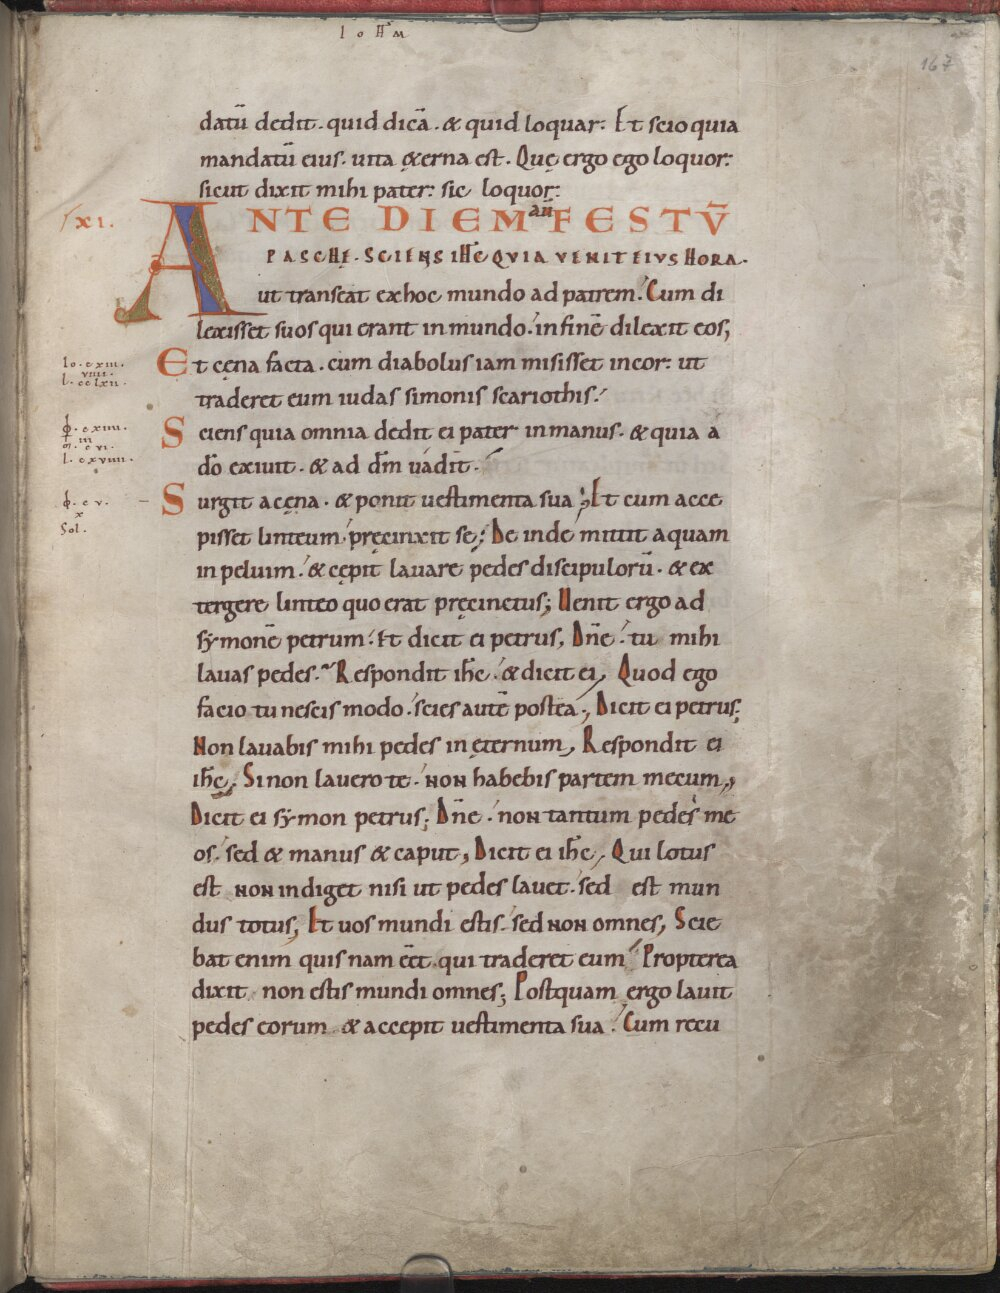 IOHM
167
datū dedit. quid dicā. & quid loquar: Et scio quia
mandatū eius. uita &erna est. Quę ergo ego loquor:
sicut dixit mihi pater: sic loquor:
xi.
ANTE DIEM FESTŪ
PASCHĘ. SCIENS IHC QVIA VENIT EIVS HORA.
ut transeat ex hoc mundo ad patrem. Cum di
lexisset suos qui erant in mundo. in finē dilexit eos;
Io. cxiii.
viiii.
l. cclxii.
Et cęna facta. cum diabolus iam misisset in cor: ut
traderet eum iudas simonis scariothis.
Sciens quia omnia dedit ei pater in manus. & quia a
c. cxiiii.
iii
c. vi.
l. cxviiii.
dō exiuit. & ad dm̄ uadit.
Surgit a cęna. & ponit uestimenta sua; Et cum acce
c. v.
x
Sol.
pisset linteum. pręcinxit se; De inde mittit aquam
in peluim. & cępit lauare pedes discipulorū. & ex
tergere linteo quo erat pręcinctus; Uenit ergo ad
symonē petrum. Et dicit ei petrus, Dn̄e. tu mihi
lauas pedes. Respondit ihc. & dicit ei, Quod ego
facio tu nescis modo. scies autē postea; Dicit ei petrus;
Non lauabis mihi pedes in ęternum, Respondit ei
ihc, Si non lauero te. NON habebis partem mecum,
Dicit ei symon petrus; Dn̄e. non tantum pedes me
os. sed & manus & caput, Dicit ei ihc, Qui lotus
est NON indiget nisi ut pedes lauet. sed est mun
dus totus; Et uos mundi estis. sed NON omnes, Scie
bat enim quis nam eēt. qui traderet eum Propterea
dixit non estis mundi omnes; Postquam ergo lauit
pedes eorum & accepit uestimenta sua. Cum recu